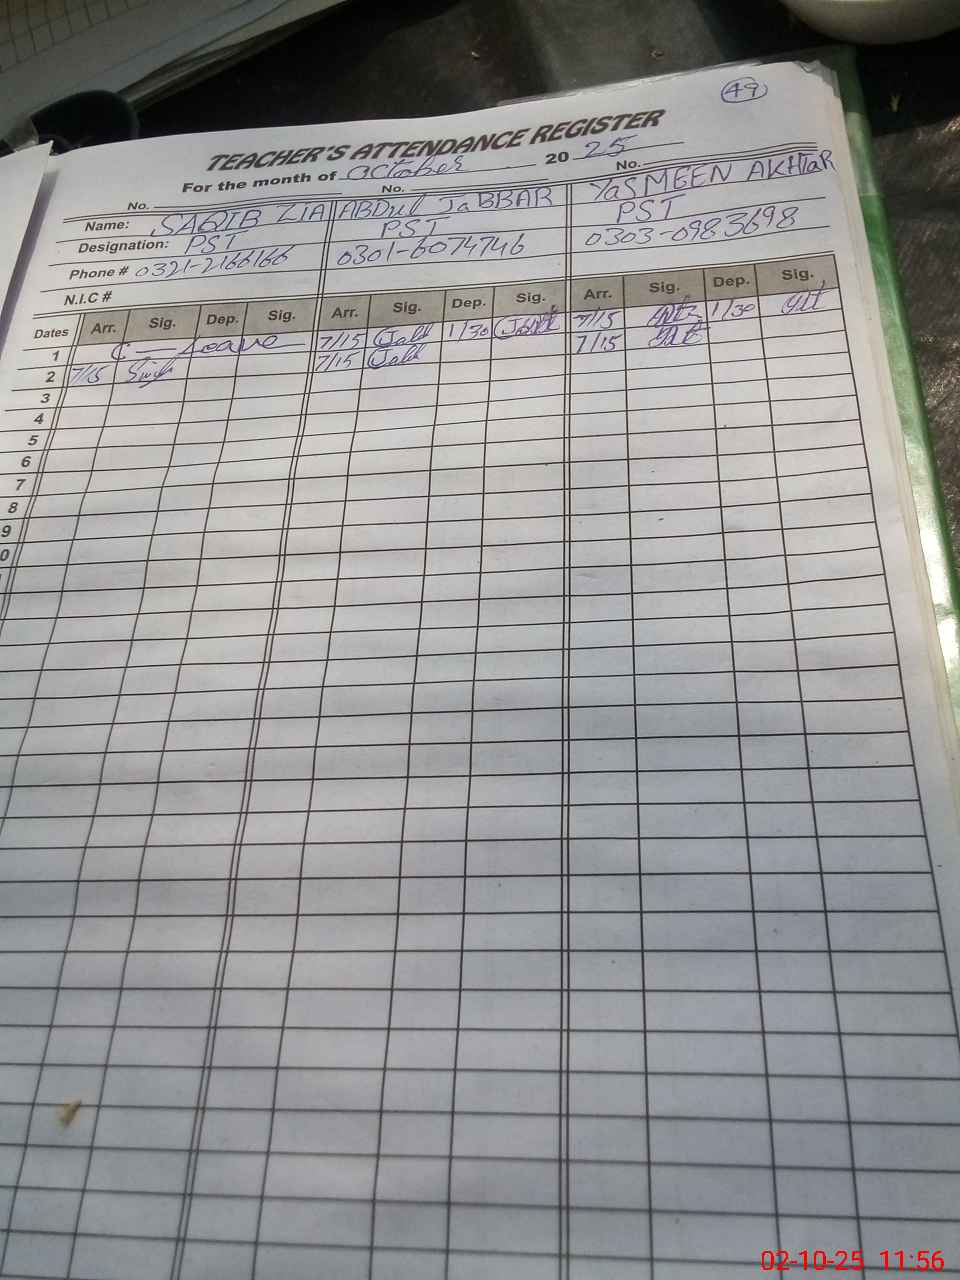 49
TEACHER'S ATTENDANCE REGISTER
For the month of October 20 25
No. No. No.
Name: SAQIB ZIA ABDul JaBBAR YaSMEEN AKHTaR
Designation: PST PST PST
Phone # 0321-2166166 0301-6074746 0303-0983698
N.I.C #
Dates Arr. Sig. Dep. Sig. Arr. Sig. Dep. Sig. Arr. Sig. Dep. Sig.
1 C - Leave 7/15 1/30 7/15 1/30
2 7/15 7/15 7/15
3
4
5
6
7
8
9
0
02-10-25 11:56